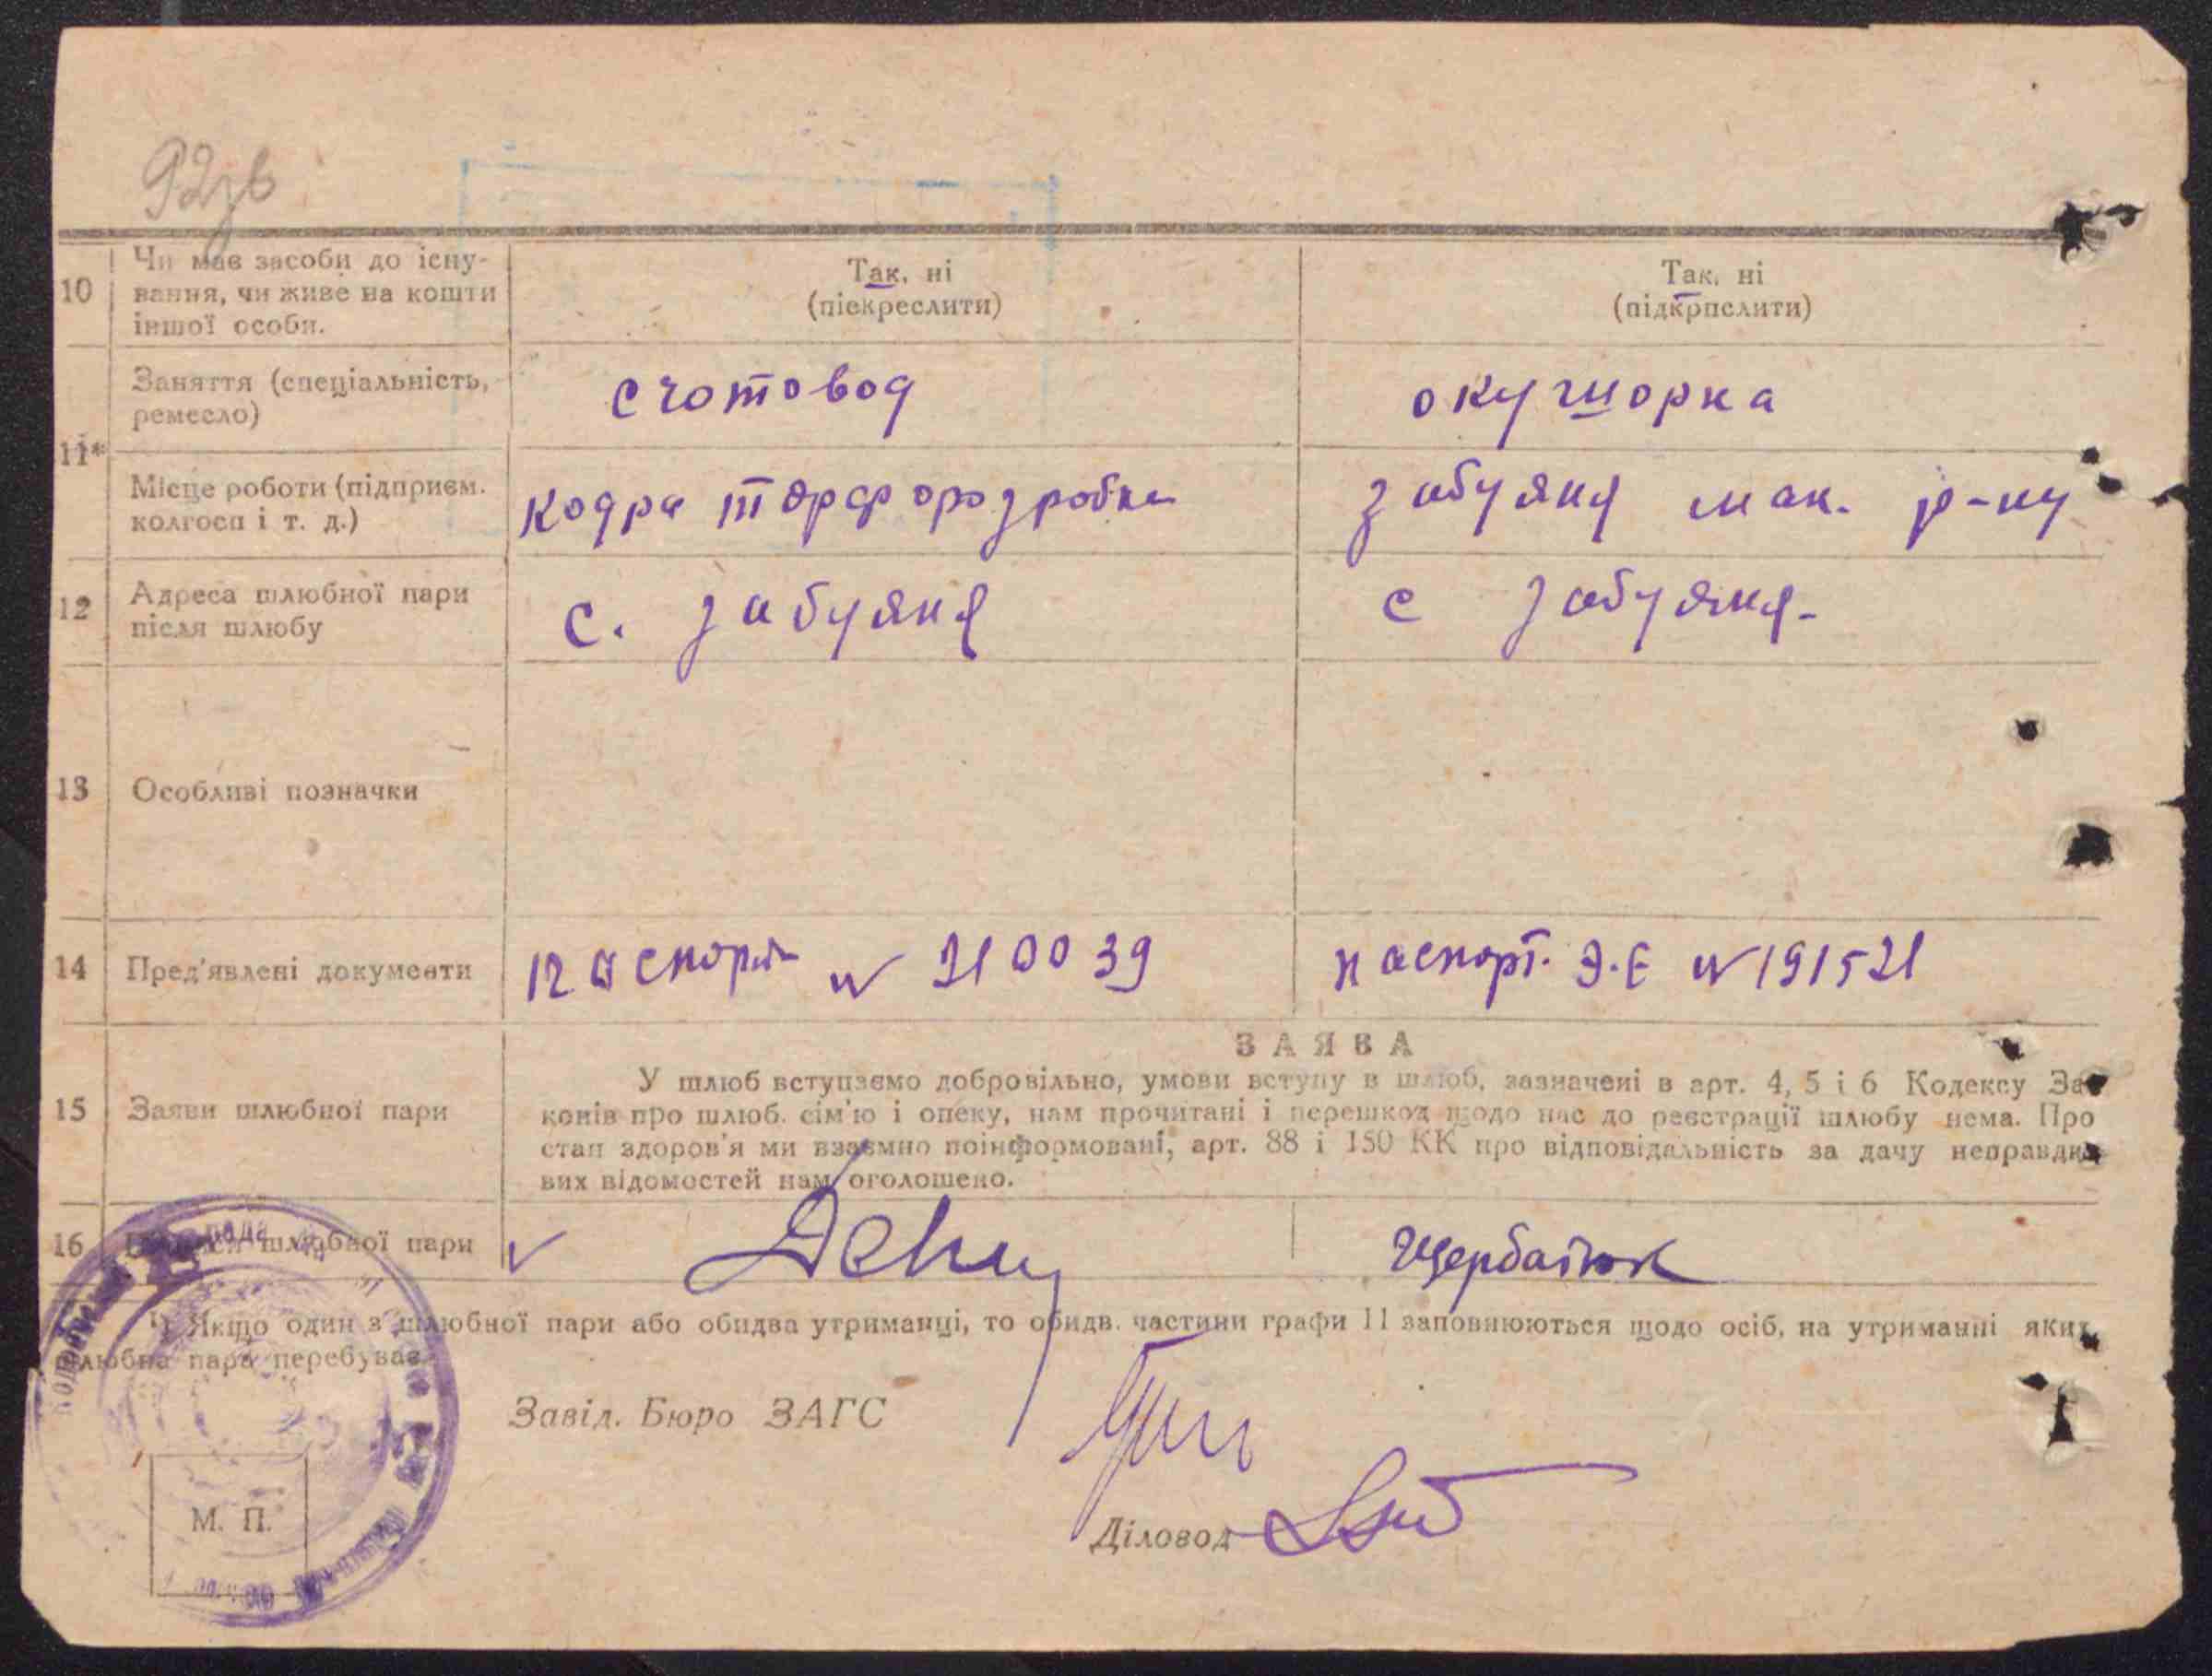 92зв
10 Чи має засоби до існу-
вання, чи живе на кошти
іншої особи.
Так, ні
(піекреслити)
Так, ні
(підкрпслити)
11*
Заняття (спеціальність,
ремесло)
счотовод
окушорка
Місце роботи (підприєм.
колгосп і т. д.)
кодра торфорозробка
забуяня мак. р-ну
12 Адреса шлюбної пари
після шлюбу
с. забуяня
с забуяня-
13 Особливі позначки
14 Пред'явлені документи
паспорт N 210039
паспорт. Э.Е N 191521
15 Заяви шлюбної пари
ЗАЯВА
У шлюб вступаємо добровільно, умови вступу в шлюб, зазначені в арт. 4, 5 і 6 Кодексу За-
конів про шлюб. сім'ю і опеку, нам прочитані і перешкод щодо нас до реєстрації шлюбу нема. Про
стан здоров'я ми взаємно поінформовані, арт. 88 і 150 КК про відповідальність за дачу неправди-
вих відомостей нам оголошено.
16 Підписи шлюбної пари
Щербатюк
¹) Якщо один з шлюбної пари або обидва утриманці, то обидв. частини графи 11 заповнюються щодо осіб, на утриманні яких
шлюбна пара перебуває.
Завід. Бюро ЗАГС
М. П.
Діловод